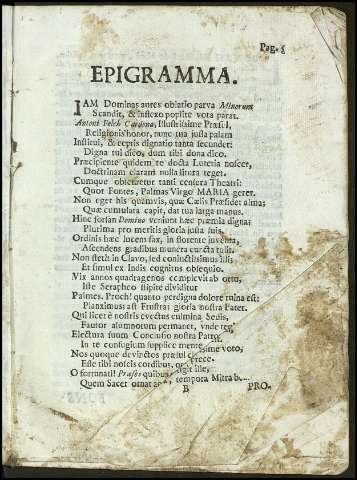 Pag. 5
EPIGRAMMA.
IAM Dominas aures oblatio parva Minorum
Scandit, & inflexo poplite vota parat.
Antoni Felch Cardona, Illustrissime Præsul,
Religionis honor, nunc tua jussa palam
Institui, & cœptis dignatio tanta secundet:
Digna tui dico, dum tibi dona dico.
Præcipiente quidem te docta Lutetia noscet,
Doctrinam claram nulla litura teget.
Cumque obicetur tanti censura Theatri
Quot Fontes, Palmas Virgo MARIA geret.
Non eget his quamvis, quæ Cælis Præsidet alma;
Quæ cumulata capit, dat tua larga manus.
Hinc forsan Domino veniunt hæc præmia digna:
Plurima pro meritis gloria justa tuis.
Ordinis hæc lucem fax, in florente juventa,
Ascendens gradibus munera cuncta tulit.
Non stetit in Clavo, sed conjuctissimus illi;
Et simul ex Indis cognitus obsequio.
Vix annos quadragenos complevit ab ortu,
Iste Seraphco stipite dividitur
Palmes. Proch! quanto perdigna dolore ruina est:
Planximus; ast Frustra: gloria nostra Pater.
Qui licet è nostris evectus culmina Sedis,
Fautor alumnorum permanet, unde
Electura suum Conciuso nostra
In te confugium supplice mente
Nos quoque devinctos præsul voto,
Este tibi noscis cordibus, prece.
O fortunati! Præsos quibus ille,
Quem Sacet ornat tempora Mitra
B
PRO-